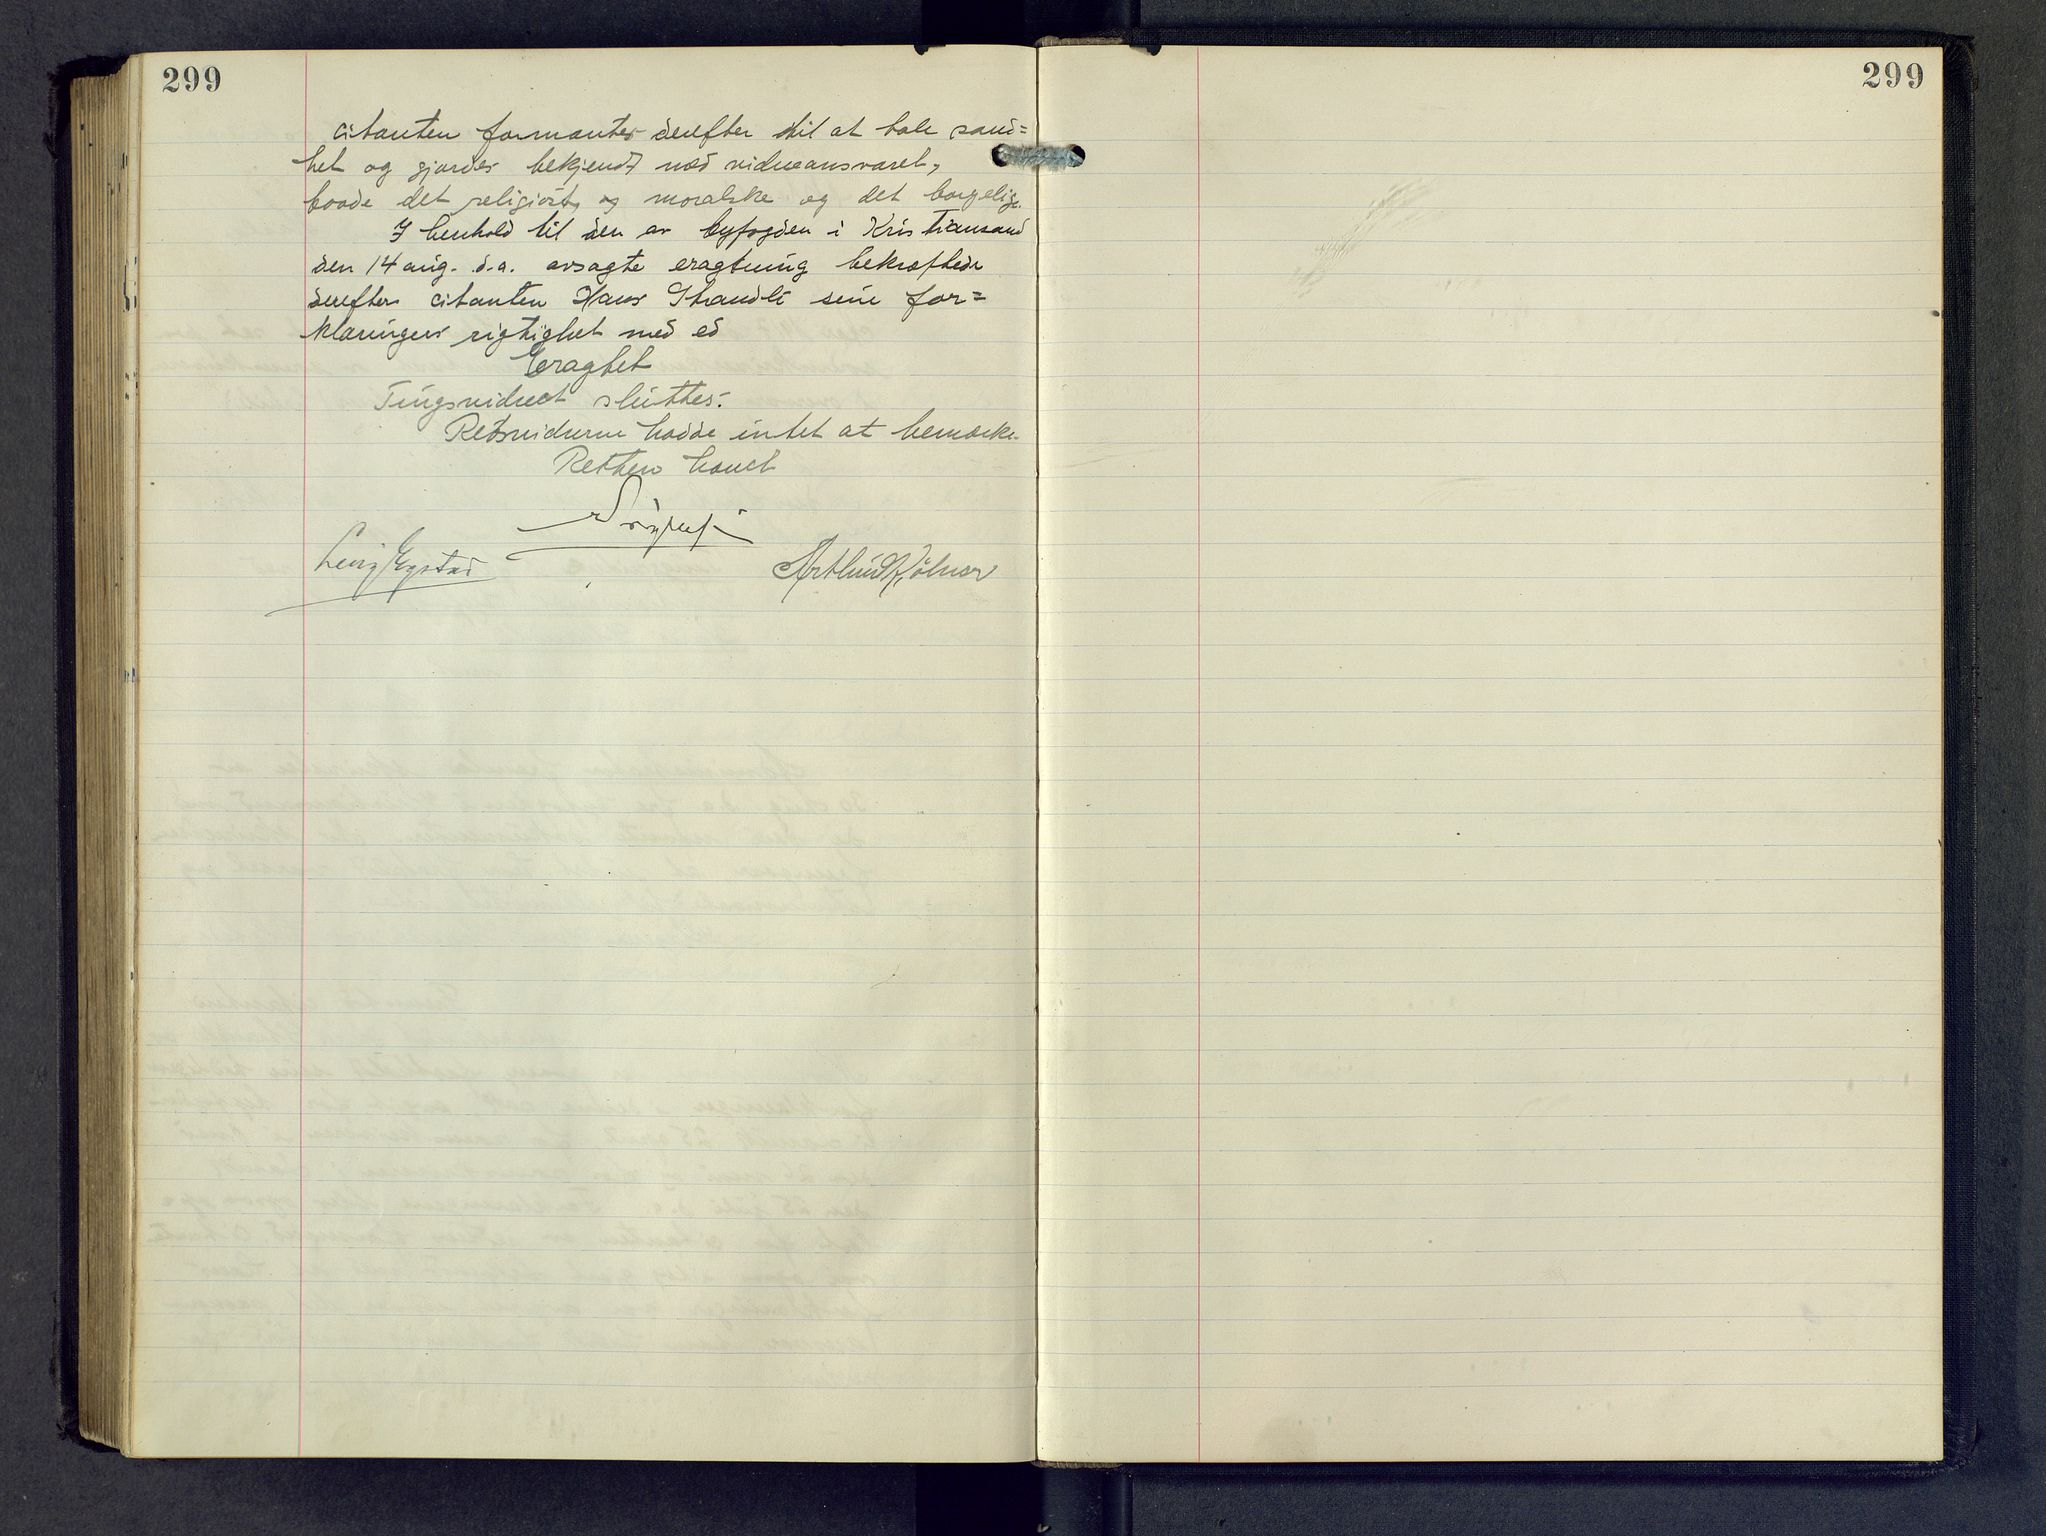 299
citanten formantes derefter til at tale sand=
het og gjordes bekjendt med vidneansvaret,
baade det religiøst og moralske og det borgelige.
I henhold til den av byfogden i Kristiansand
den 14 aug. d.a. avsagte eragtning bekræftede
derefter citanten Hans Strandli sine for=
klaringers rigtighet med ed
Eragtet
Tingsvidnet sluttes.
Retsvidnerne hadde intet at bemærke.
Retten hævet
Leviy Egstad
Arthur Kölner
299